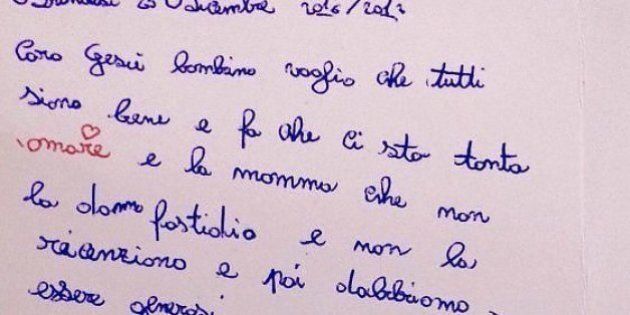 Dicembre 2016/2017
Caro Gesù bambino voglio che tutti
siano bene e fa che ci sta tanta
amore e la mamma che non
la danno fastidio e non la
ricenziano e poi dabbiamo
essere generosi